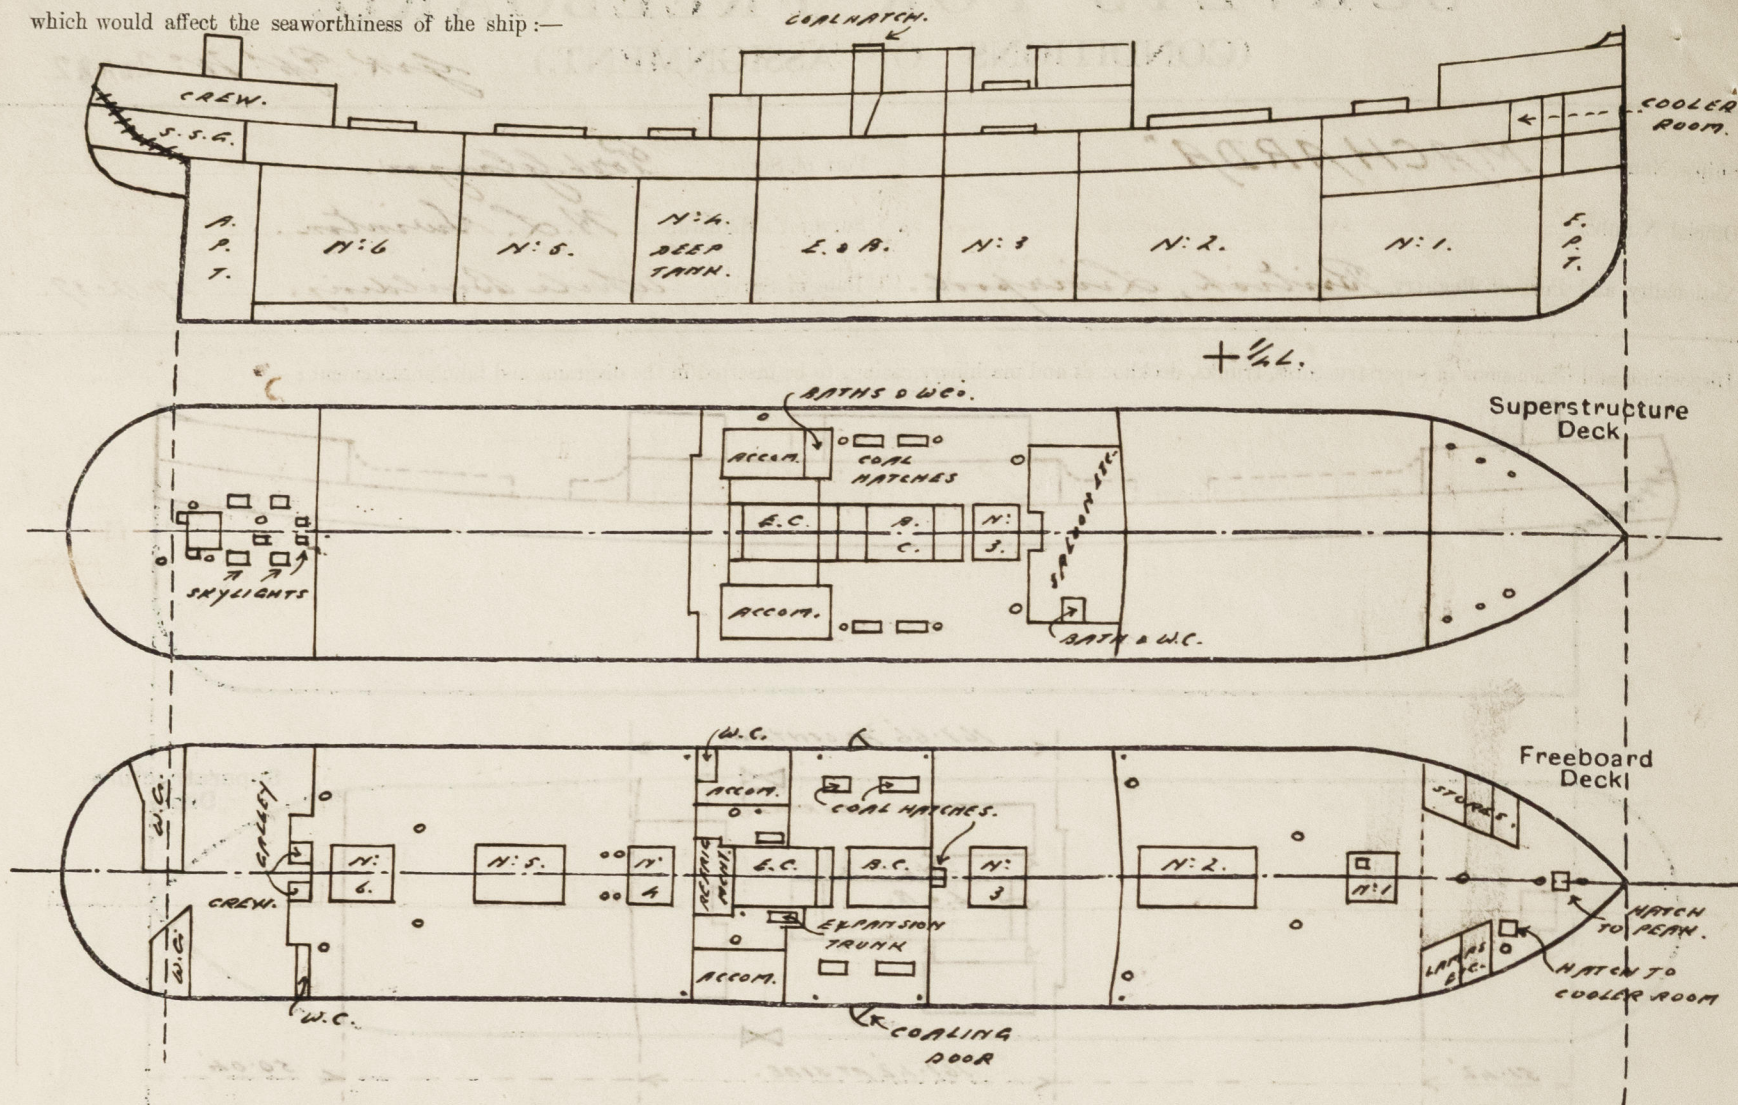 which would affect the seaworthiness of the ship :—
COAL HATCH.
CREW.
S.S.G.
COOLER
ROOM.
A.
P.
T.
Nº 6
Nº 5.
Nº 4.
DEEP
TANK.
E. & B.
Nº 3
Nº 2.
Nº 1.
F.
P.
T.
+ ½ L.
BATHS & WCs.
Superstructure
Deck
ACCOM.
COAL
HATCHES
E.C.
B.
C.
Nº
3.
SALOON ETC.
SKYLIGHTS
ACCOM.
BATH & W.C.
W.C.
Freeboard
Deck
W.C.
GALLEY.
ACCOM.
COAL HATCHES.
STORES.
Nº
6.
Nº 5.
Nº
4
E.C.
B.C.
Nº
3
Nº 2.
Nº 1
CREW.
EXPANSION
TRUNK
HATCH
TO PEAK.
W.C.
ACCOM.
LAMPS
ETC.
HATCH TO
COOLER ROOM
W.C.
COALING
DOOR